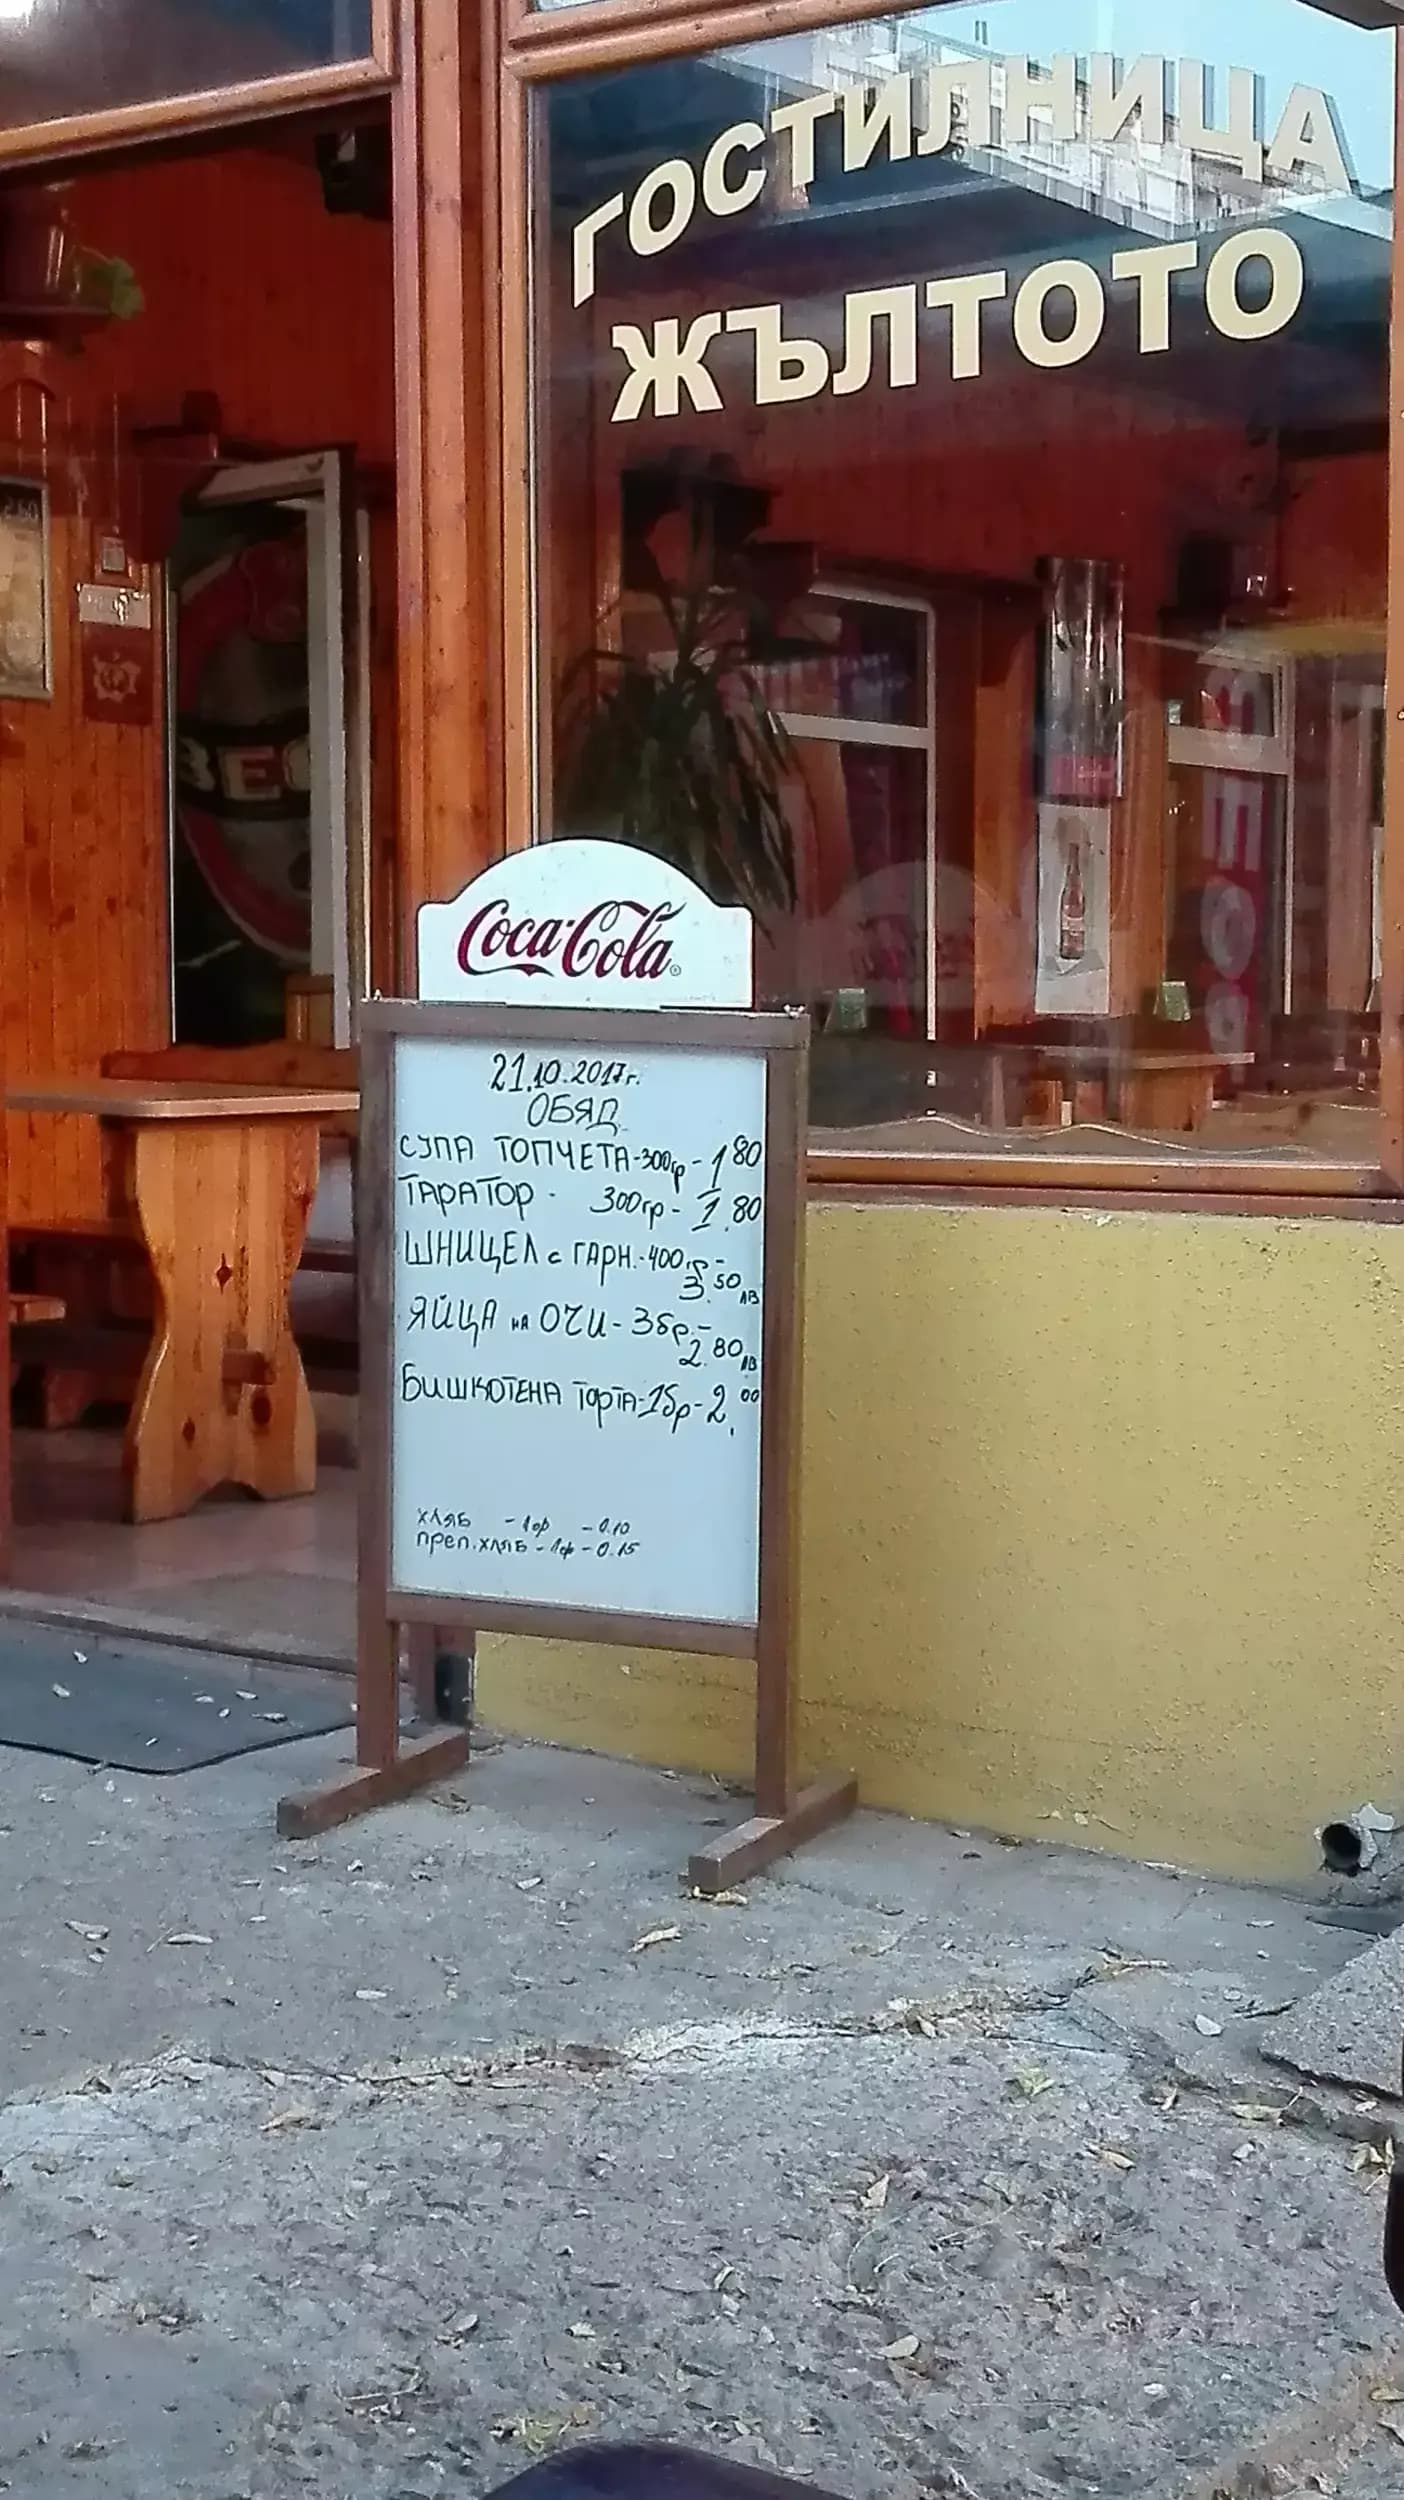 ГОСТИЛНИЦА
ЖЪЛТОТО
BEC
Coca-Cola
21.10.2017г.
ОБЯД
СУПА ТОПЧЕТА-300гр-1.80
ТАРАТОР - 300гр- 1.80
ШНИЦЕЛ с ГАРН.-400гр-
3.50лв
ЯЙЦА на ОЧИ-3бр.-
2.80лв
БИШКОТЕНА ТОРТА-1бр-2.00
ХЛЯБ -1ф -0.10
ПРЕП.ХЛЯБ-1ф-0.15